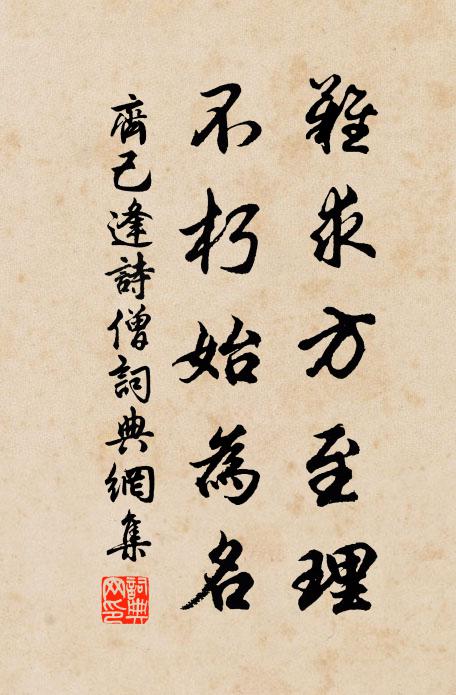 難求方至理
不朽始為名
齊己逢詩僧詞典網集
詞典網印